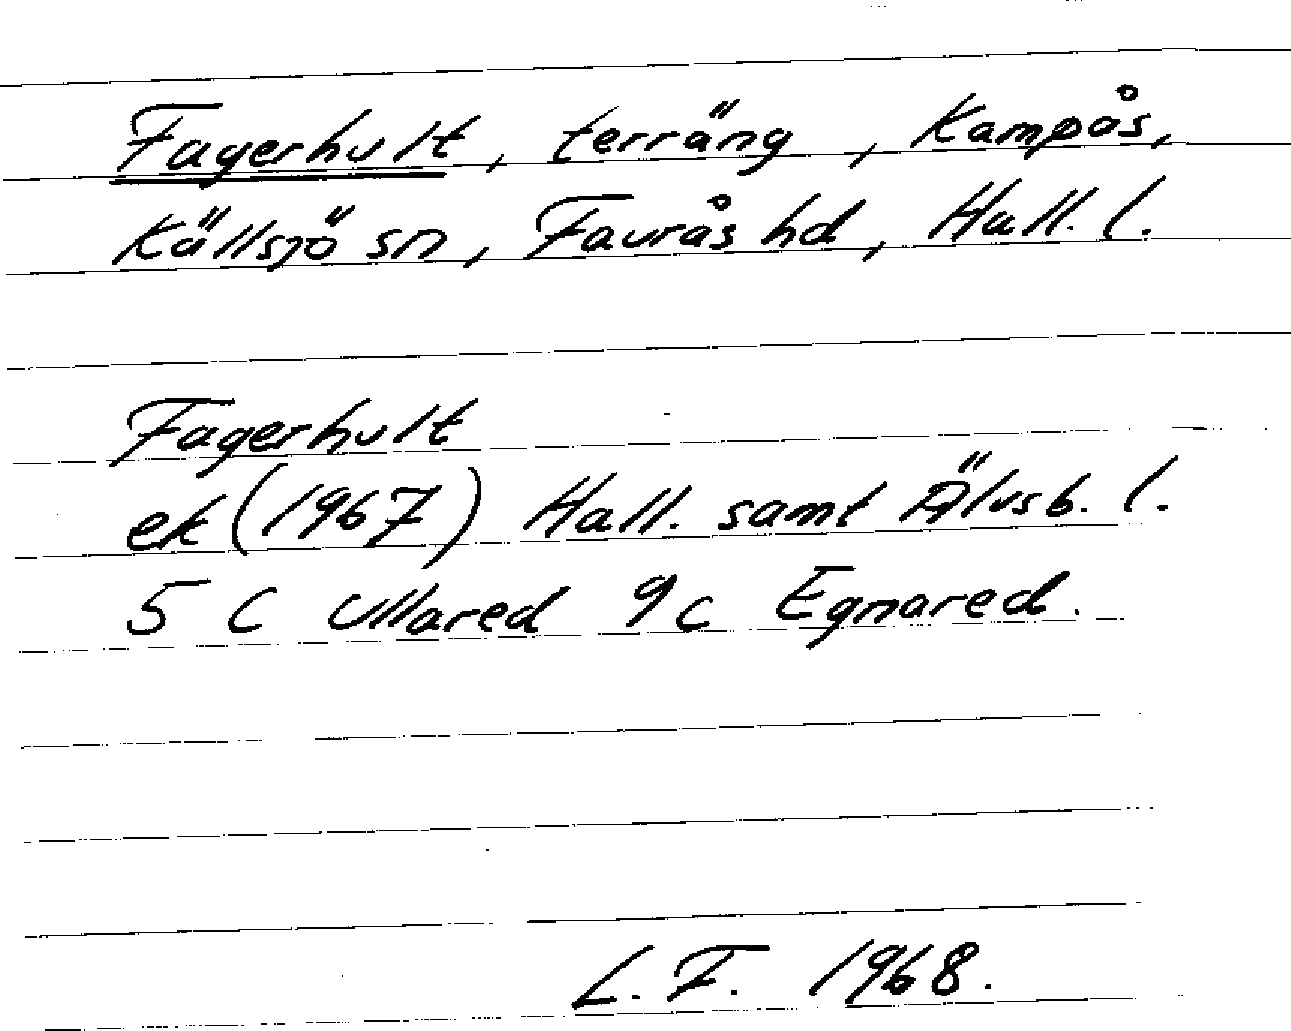 Fagerhult, terräng, Kampås,
Källsjö sn, Faurås hd, Hall. l.
Fagerhult
ek (1967) Hall. samt Älvsb. l.
5 C Ullared 9c Egnared.
L. F. 1968.